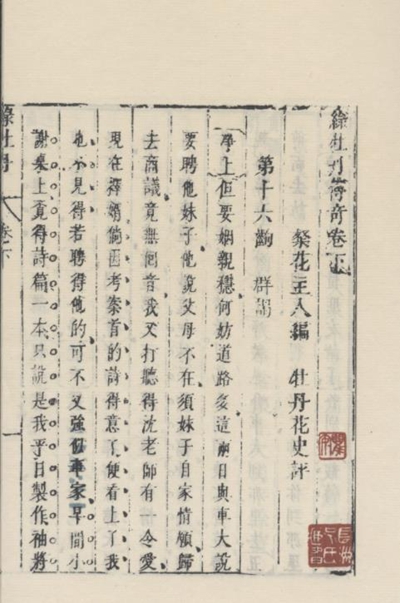 綠牡丹傳奇卷下
粲花主人編 牡丹花史評
第十六齣 群謁
淨上但要姻親穩何妨道路多這兩日與車大說
要聘他妹子他說父母不在須妹子自家情願歸
去商議竟無回音我又打聽得沈老師有一令愛
現在擇婿倘因考案首的詩得意了便看上了我
也不見得若聘得他的可不又強似車家早間小
謝桌上竟得詩篇一本只說是我平日製作袖將
綠牡丹 卷下 一